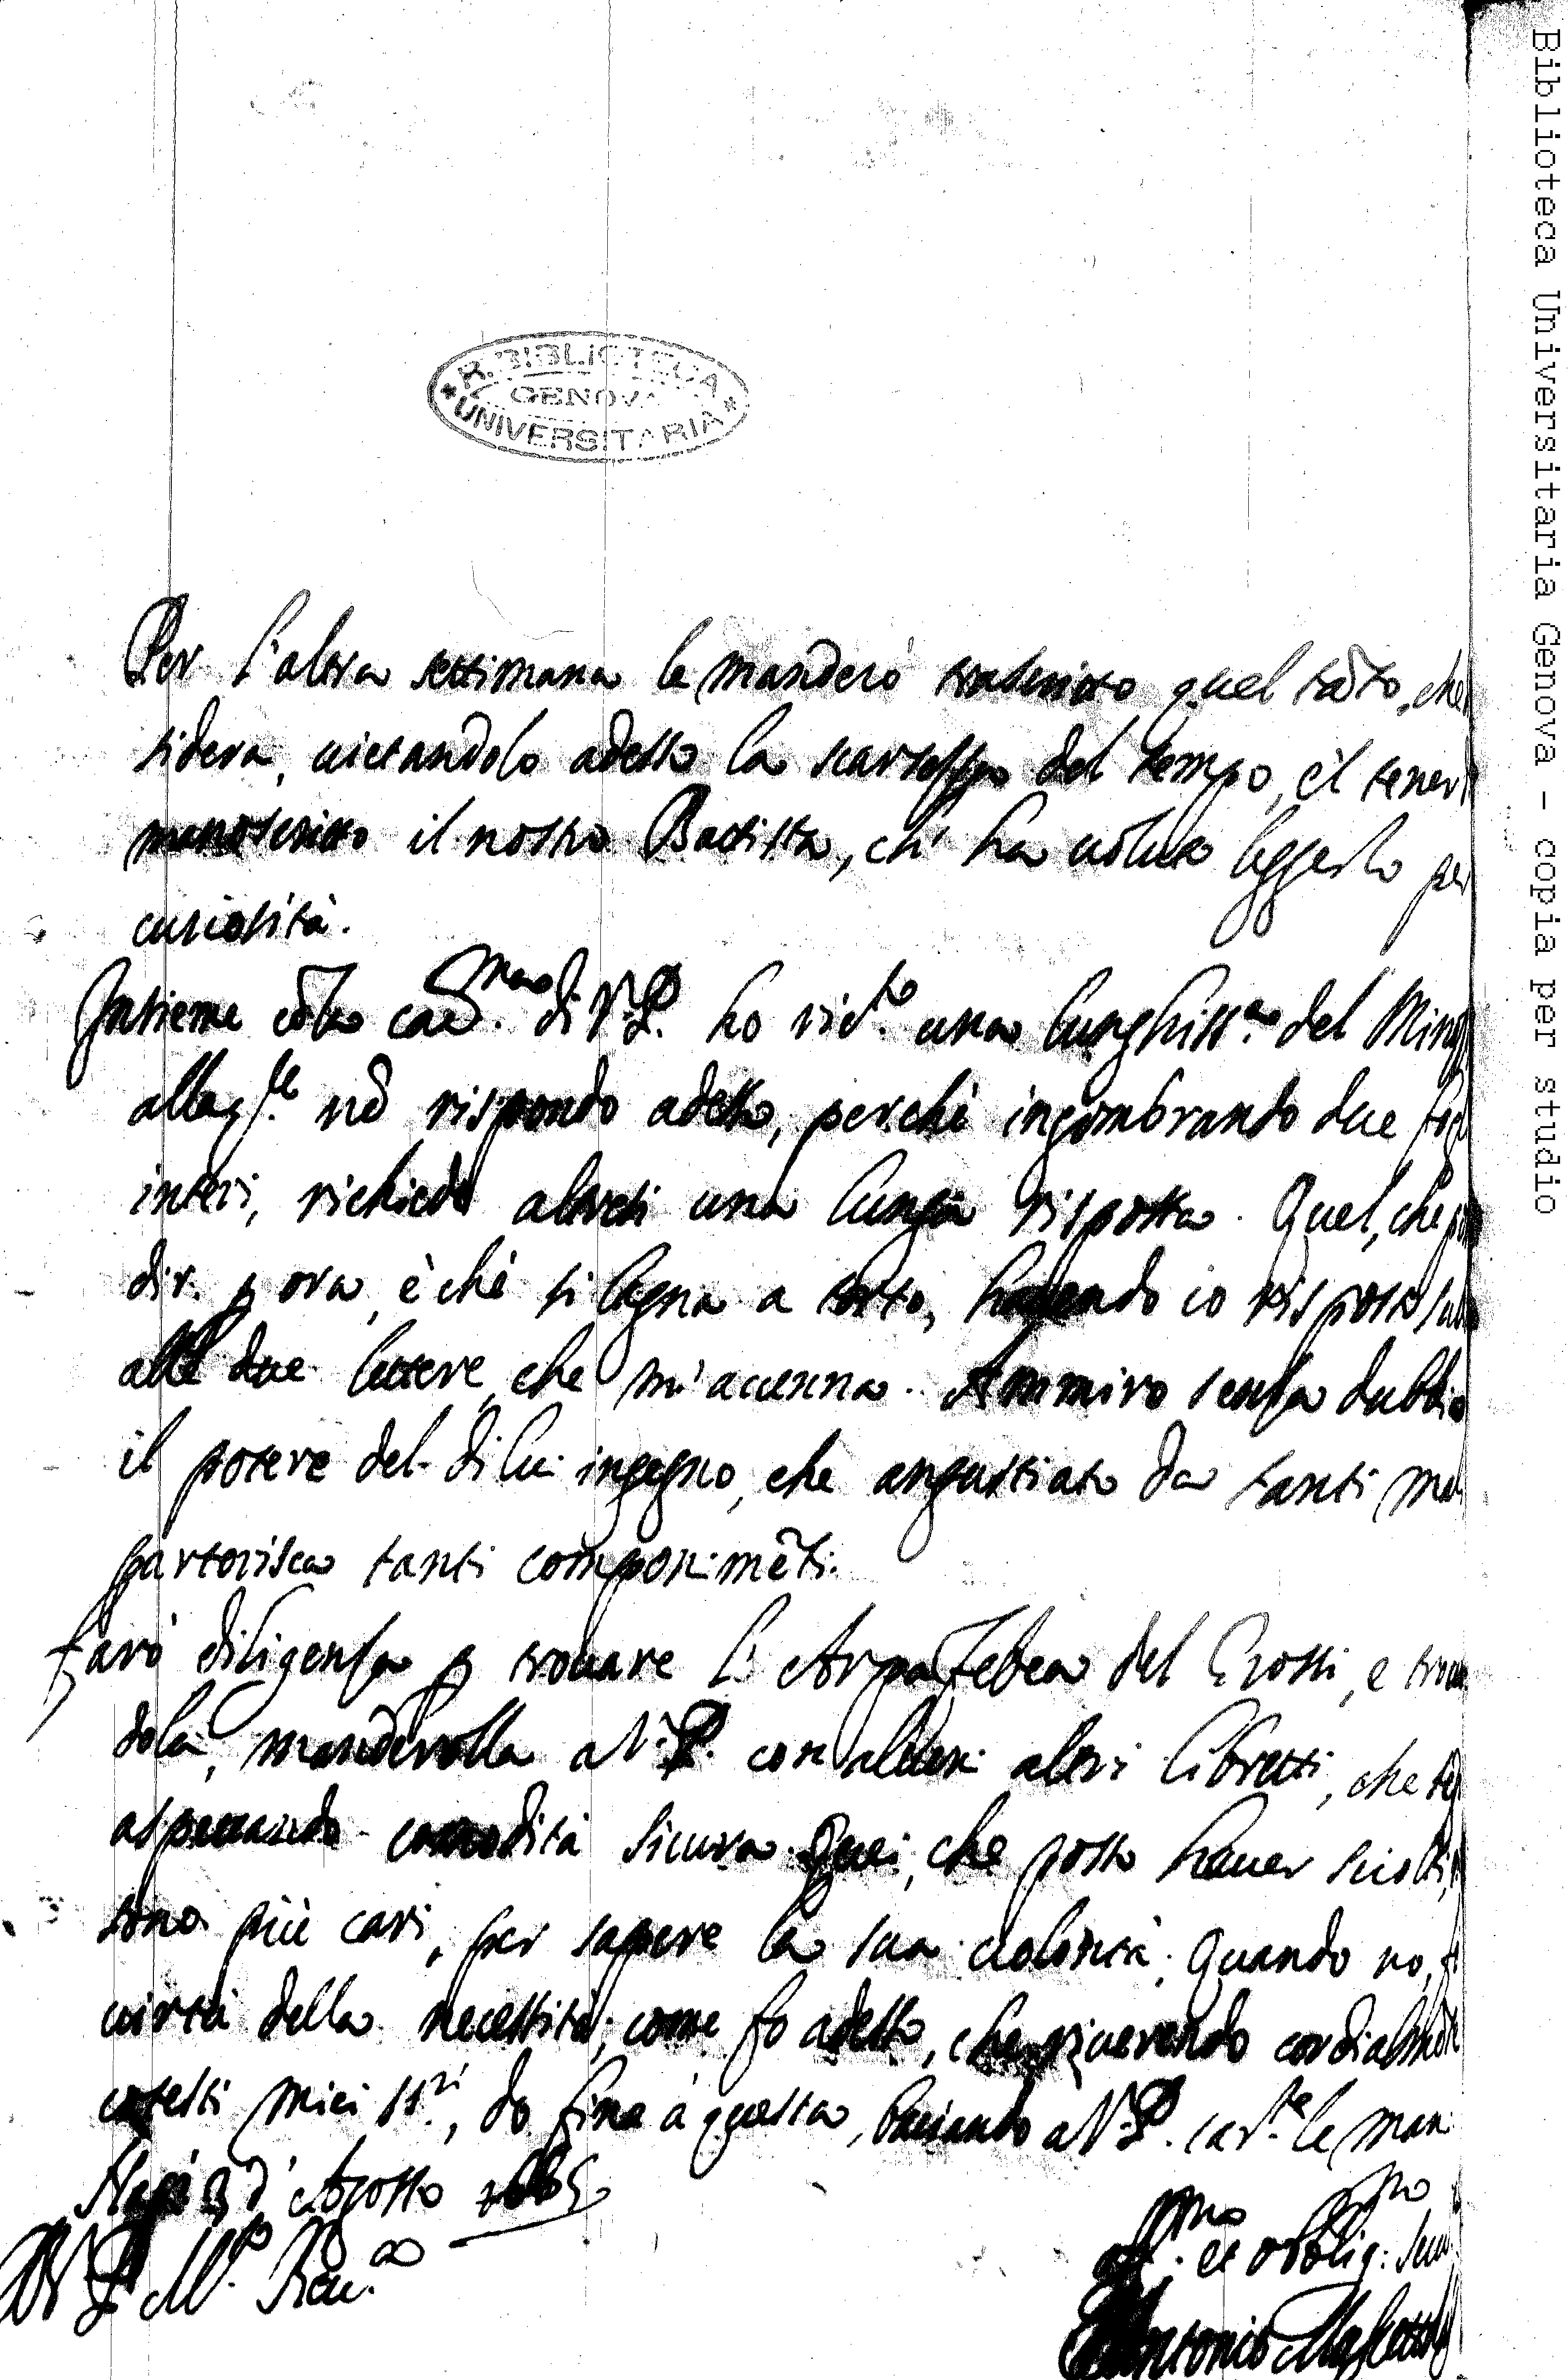 Biblioteca Universitaria Genova - copia per studio
R. BIBLIOTECA
GENOVA
UNIVERSITARIA
Per l'altra settimana le manderò trascritto quel tãto, che
sidera, vietandolo adesso la scarsezza del tempo, e'l tener
manoscritto il nostro Battista, ch' ha voluto leggerlo per
curiosità.
Insieme cõ la car.ma di V.P. ho ric.to una lunghiss.a del Min
alla q.le nõ rispondo adesso, perchè ingombrando due fog
interi, richiede altresi una lunga risposta. Quel, che
dir p ora, è chè si lagna a torto, havendo io risposto
alle due lettere, che m'accenna. Ammiro senza dubbio
il potere del di lui ingegno, che angustiato da tanti ma
partorisca tanti componimẽti.
Farò diligenza p trovare l'Arpa Febea del Grossi, e trova
dola, manderolla a V.P. con alcuni altri libretti, che
aspettando comodità sicura. Quei, che posso haver sciolti,
sono più cari, per sapere la sua volontà; Quando no, f
virtù della necessità; come fo adesso, che riverendo cordialmẽte
cotesti miei SS.ri, do fine a questa, baciando a V.P. car.te le man
Nap. 3 d'Agosto 1665
D V.P. M.to Rev.a
aff.mo et obblig.mo Ser
Antonio